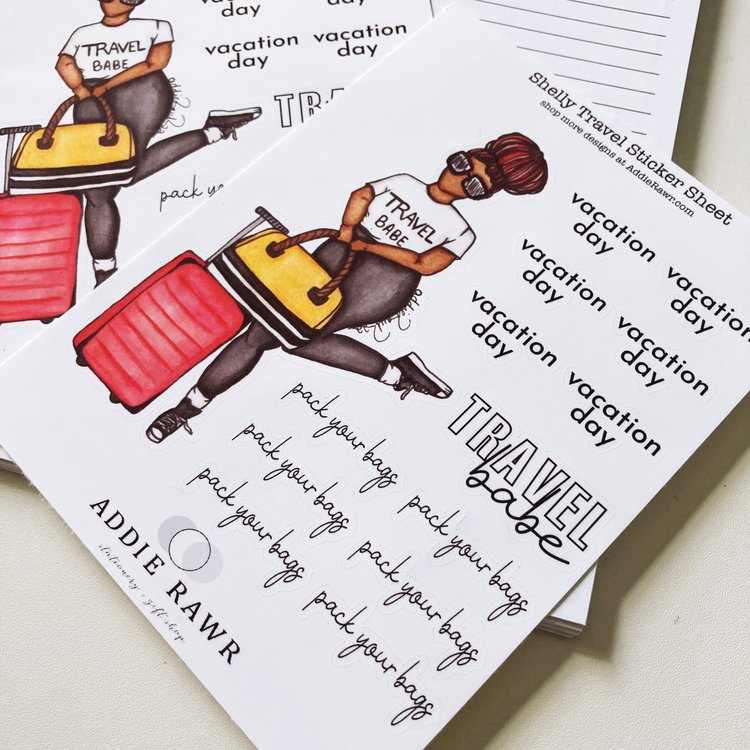 day
day
vacation
day
vacation
day
TRAVEL
BABE
TR
pack you
Shelly Travel Sticker Sheet
shop more designs at AddieRawr.com
TRAVEL
BABE
vacation
day
vacation
day
vacation
day
vacation
day
vacation
day
vacation
day
TRAVEL
babe
pack your bags
pack your bags
pack your bags
pack your bags
pack your bags
pack your bags
ADDIE RAWR
stationery + gift shop